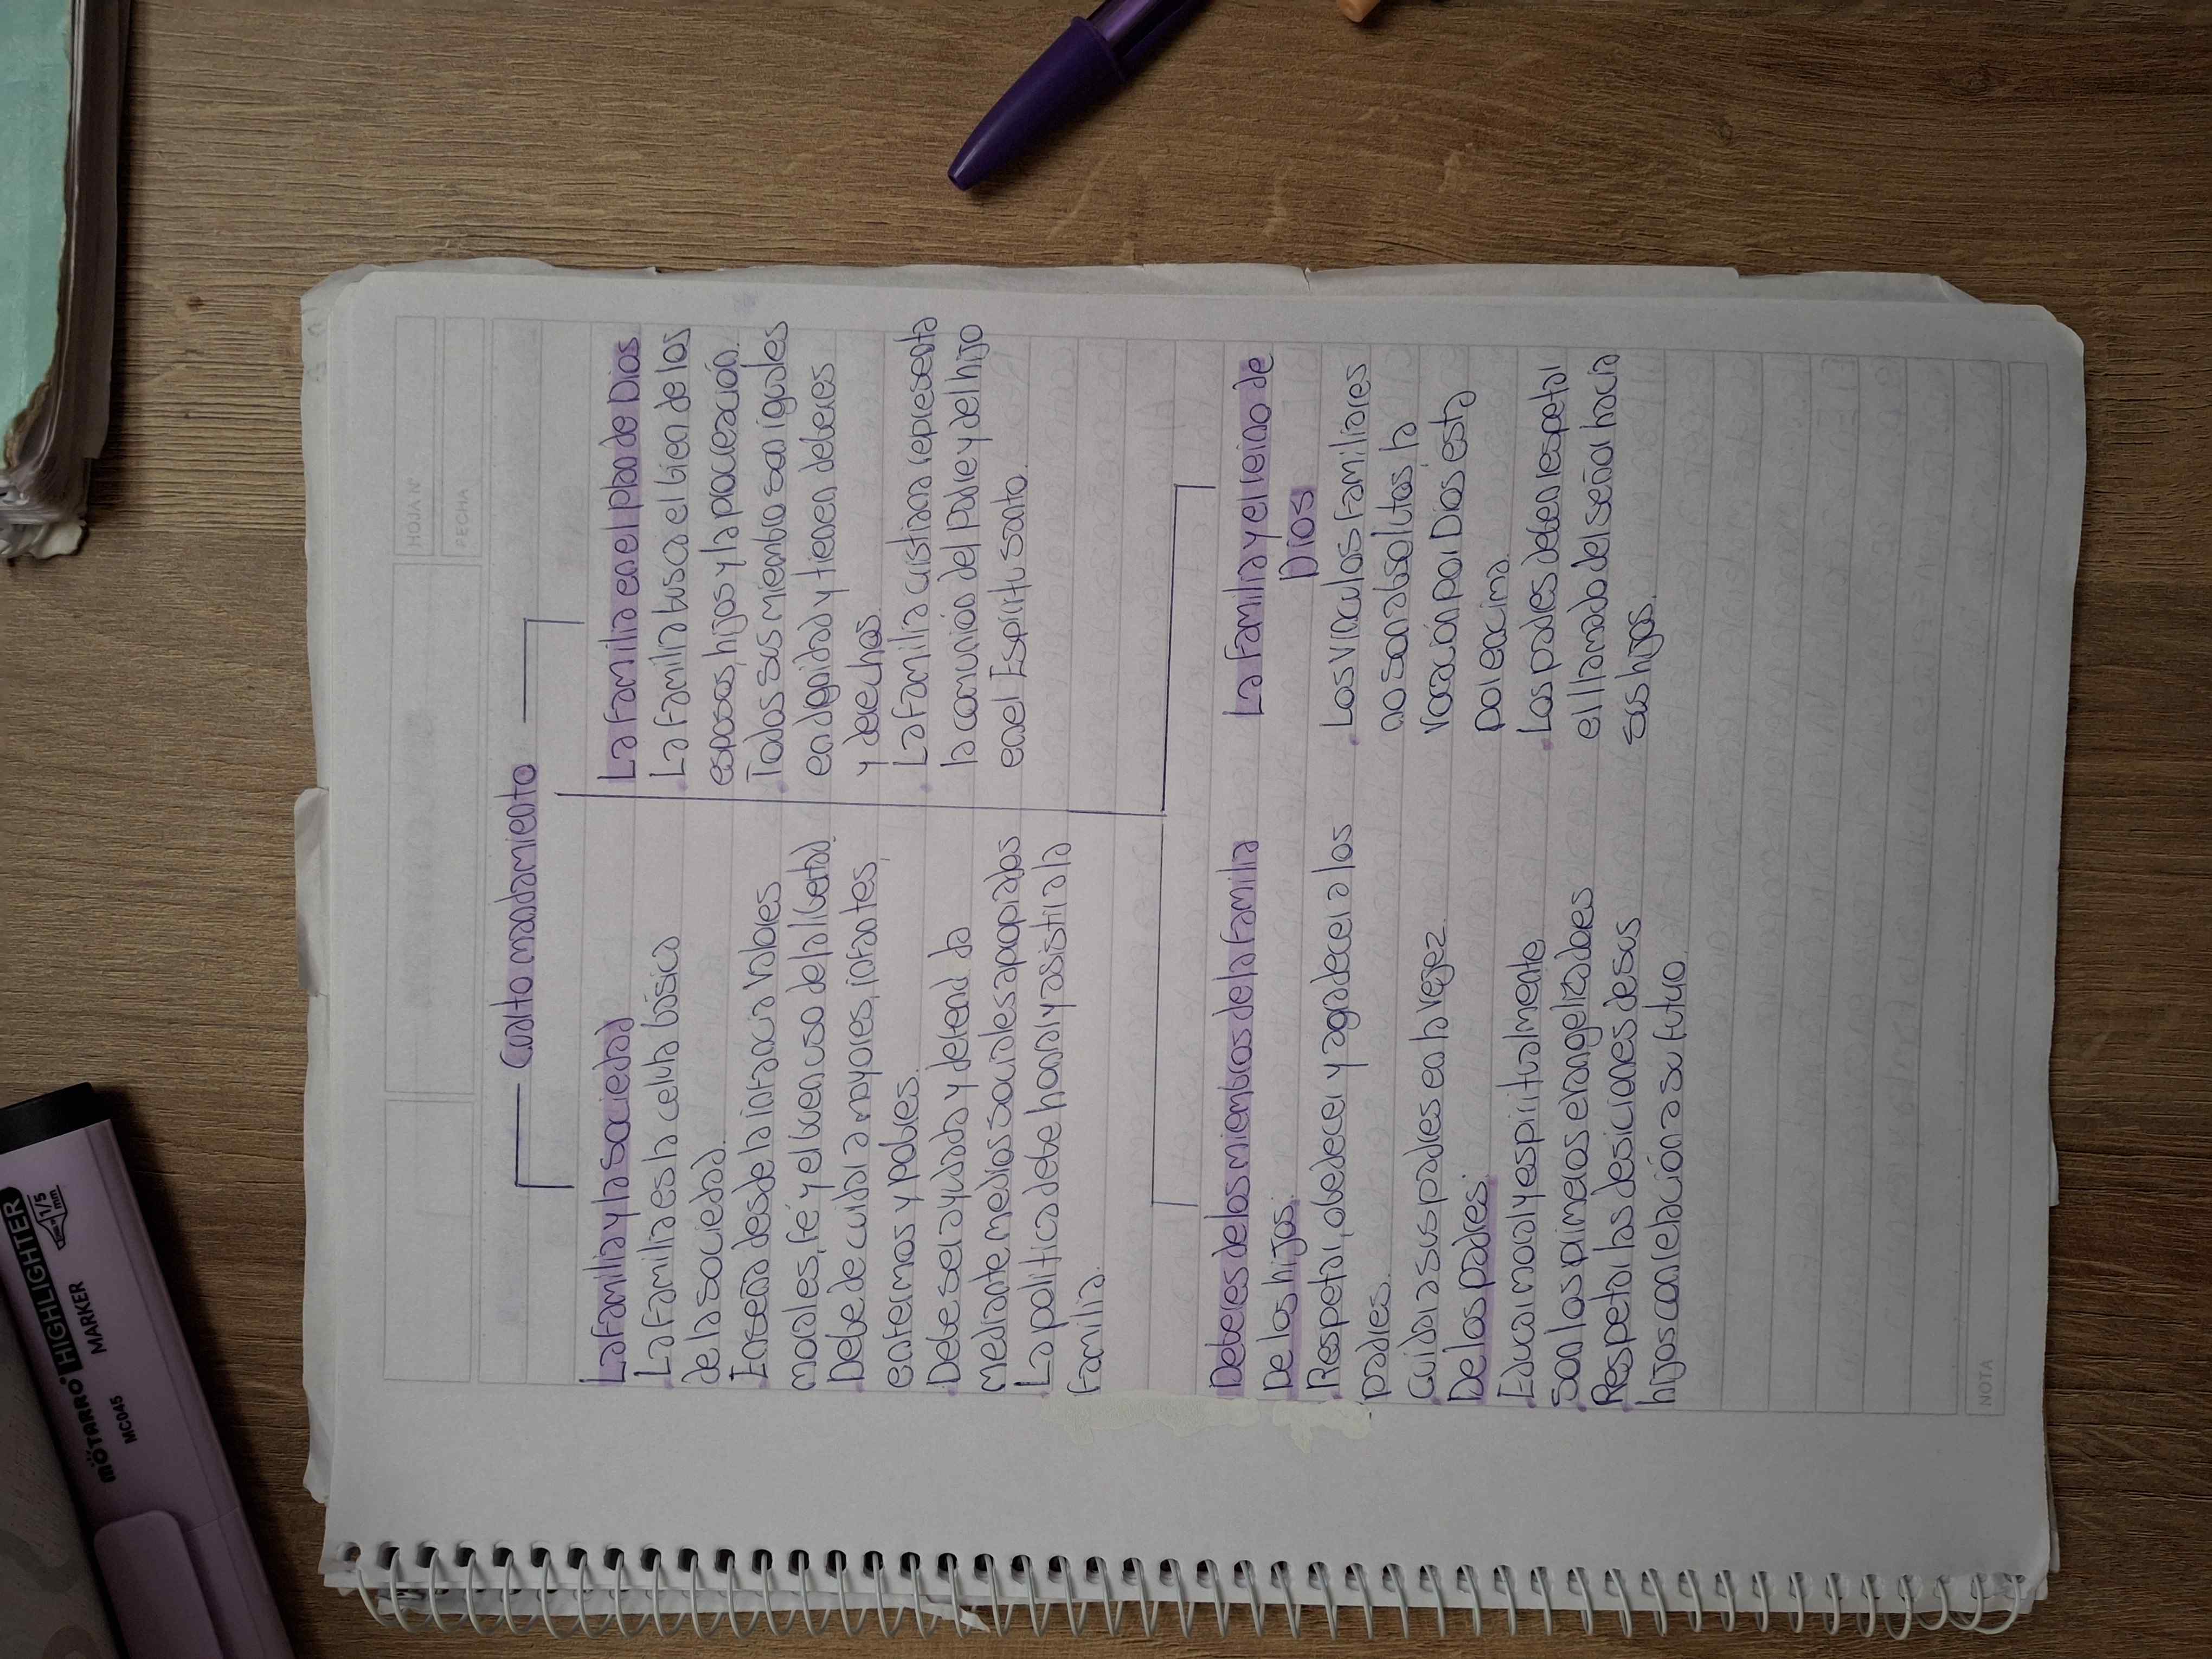 HOJA Nº
FECHA
Cuarto mandamiento
La familia y la sociedad
. La familia es la celula básica
de la sociedad.
. Enseña desde la infancia valores
morales, fé y el buen uso de la libertad.
. Debe de cuidar a mayores, infantes,
enfermos y pobres.
. Debe ser ayudada y defendida
mediante medios sociales apropiados
. La politica debe honrar y asistir a la
familia.
La familia en el plan de Dios
. La familia busca el bien de los
esposos, hijos y la procreación.
. Todos sus miembros son iguales
en dignidad y tienen deberes
y derechos.
. La familia cristiana representa
la comunión del Padre y del hijo
en el Espíritu santo.
Deberes de los miembros de la familia
De los hijos:
. Respetar, obedecer y agradecer a los
padres.
. Cuidar a sus padres en la vejez.
De los padres:
. Educar moral y espiritualmente
. Son los primeros evangelizadores
. Respetar las desiciones de sus
hijos con relación a su futuro.
La familia y el reino de
Dios
. Los vinculos familiares
no son absolutos, la
vocación por Dios esta
por encima.
. Los padres deben respetar
el llamado del señor hacia
sus hijos.
NOTA
MÖTARRO HIGHLIGHTER
MARKER
1/5
mm
MC045